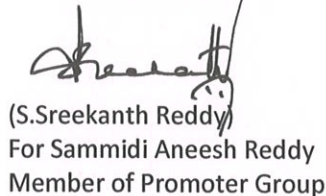 Sreekanth
(S.Sreekanth Reddy)
For Sammidi Aneesh Reddy
Member of Promoter Group